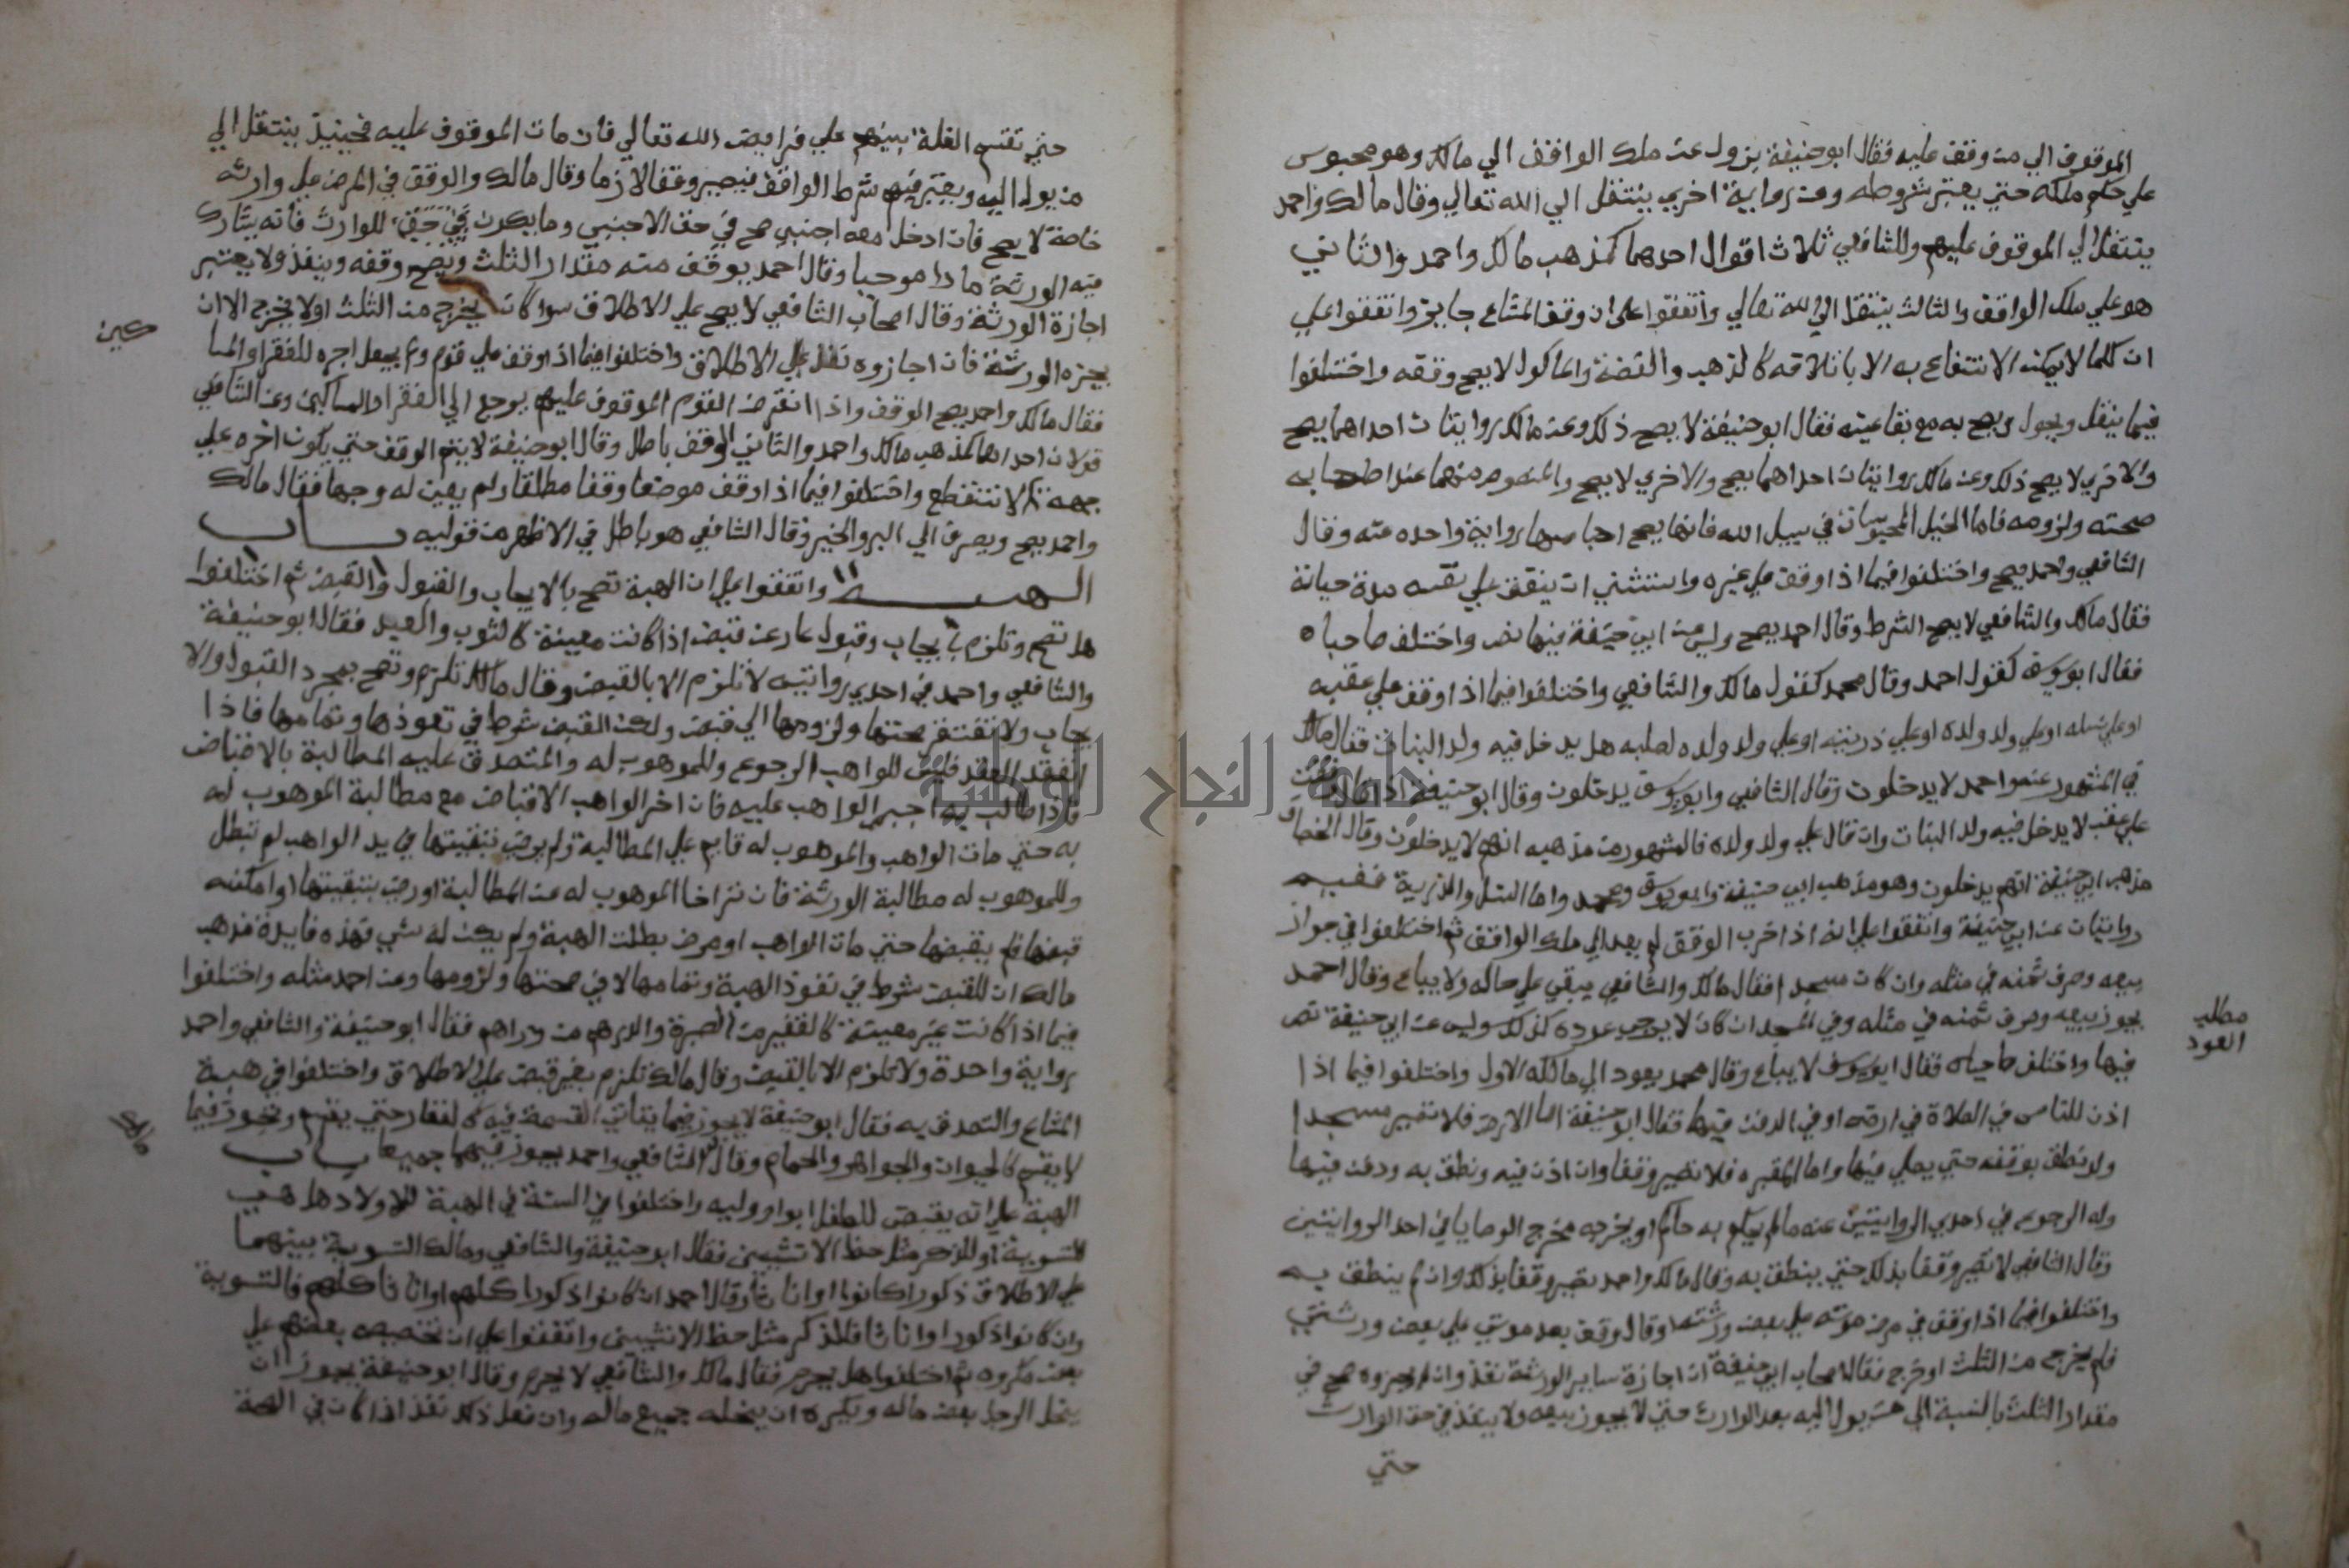 الموقوف الي من وقف عليه فقال ابوحنيفة يزول عن ملك الواقف الي مالك وهو محبوس
علي حكم ملكه حتي يعتبر شروطه ومن رواية اخري ينتقل الي الله تعالي وقال مالك واحمد
ينتقل الي الموقوف عليهم وللشافعي ثلاث اقوال احدهما كمذهب مالك واحمد والثاني
هو علي ملك الواقف والثالث ينتقل الي الله تعالي واتفقوا علي ان وقف المشاع جايز واتفقوا علي
ان كلما لا يمكن الانتفاع به الا باتلافه كالذهب والفضة والماكول لا يصح وقفه واختلفوا
فيما ينقل ويحول ويصح به مع بقا عينه فقال ابوحنيفة لا يصح ذلك وعن مالك روايتان احداهما يصح
والاخري لا يصح ذلك وعن مالك روايتان احداهما يصح والاخري لا يصح والمنصوص منهما عند اصحابه
صحته ولزومه فاما الخيل المحبوسات في سبيل الله فانها يصح احباسها رواية واحده منه وقال
الشافعي واحمد يصح واختلفوا فيما اذا وقف علي غيره واستثني ان ينفق علي نفسه مدة حياته
فقال مالك والشافعي لا يصح الشرط وقال احمد يصح وليس عن ابي حنيفة فيها نص واختلف صاحباه
فقال ابويوسف كقول احمد وقال محمد كقول مالك والشافعي واختلفوا فيما اذا وقف علي عقبه
او علي نسله او علي ولد ولده او علي ذريته او علي ولد ولده لصلبه هل يدخل فيه ولد البنات فقال مالك
في المشهور عنه واحمد لا يدخلون وقال الشافعي وابويوسف يدخلون وقال ابوحنيفة اذا قال وقفت
علي عقب لا يدخل فيه ولد البنات وان قال علي ولد ولده فالمشهور من مذهبه انهم لا يدخلون وقال الخصاف
مذهب ابي حنيفة انهم يدخلون وهو مذهب ابي حنيفة وابويوسف ومحمد واما النسل والذرية ففيه
روايتان عن ابي حنيفة واتفقوا علي انه اذا خرب الوقف لم يعد الي ملك الواقف ثم اختلفوا في جواز
بيعه وصرف ثمنه في مثله وان كان مسجدا فقال مالك والشافعي يبقي علي حاله ولا يباع وقال احمد
يجوز بيعه وصرف ثمنه في مثله وفي المسجد ان كان لا يرجي عوده كذلك وليس عن ابي حنيفة نص
فيها واختلف صاحباه فقال ابويوسف لا يباع وقال محمد يعود الي مالكه الاول واختلفوا فيما اذا
اذن للناس في الصلاة في ارضه او في الدفن فيها فقال ابوحنيفة اما الارض فلا تصير مسجدا
ولو نطق بوقفه حتي يصلي فيها واما المقبره فلا تصير وقفا وان اذن فيه ونطق به ودفن فيها
وله الرجوع في احدي الروايتين عنه مالم يحكم به حاكم او يخرجه مخرج الوصايا في احد الروايتين
وقال الشافعي لا تصير وقفا بذلك حتي ينطق به وقال مالك واحمد تصير وقفا بذلك وان لم ينطق به
واختلفوا فيما اذا وقف في مرض موته علي بعض ورثته او قال وقفت بعد موتي علي بعض ورثتي
فلم يخرج من الثلث او خرج فقال اصحاب ابي حنيفة ان اجازة ساير الورثة نفذ وان لم يجيزوه صح في
مقدار الثلث بالنسبة الي من يول اليه بعد الوارث حتي لا يجوز بيعه ولا ينفذ في حق الوارث
حتي
مطلب
العود
حتي تقسم الغلة بينهم علي فرايض الله تعالي فان مات الموقوف عليه فحينيذ ينتقل الي
من يول اليه ويعتبر فيهم شرط الواقف فيصير وقفا لازما وقال مالك والوقف في المرض علي وارثه
خاصة لا يصح فان ادخل معه اجنبي صح في حق الاجنبي وما يكون في حق للوارث فانه يشارك
فيه الورثة ما داموحيا وقال احمد يوقف منه مقدار الثلث ويصح وقفه وينفذ ولا يعتبر
اجازة الورثة وقال اصحاب الشافعي لا يصح علي الاطلاق سوا كان يخرج من الثلث اولا يخرج الا ان
يجزه الورثة فان اجازوه نفذ علي الاطلاق واختلفوا فيما اذا وقف علي قوم ولم يجعل اخره للفقرا والمسا
فقال مالك واحمد يصح الوقف واذا انقرض القوم الموقوف عليهم يرجع الي الفقرا والمساكين وعن الشافعي
قولان احداهما كمذهب مالك واحمد والثاني الوقف باطل وقال ابوحنيفة لا يتم الوقف حتي يكون اخره علي
جهة لا تنقطع واختلفوا فيما اذا وقف موضعا وقفا مطلقا ولم يعين له وجها فقال مالك
واحمد يصح ويصرف الي البر والخير وقال الشافعي هو باطل في الاظهر من قوليه باب
الهبة واتفقوا علي ان الهبة تصح بالايجاب والقبول والقبض ثم اختلفوا
هل تصح وتلزم بايجاب وقبول عار عن قبض اذا كانت معينة كالثوب والعبد فقال ابوحنيفة
والشافعي واحمد في احدي روايتيه لا تلزم الا بالقبض وقال مالك تلزم وتصح بمجرد القبول والا
يجاب ولا تفتقر صحتها ولزومها الي قبض ولكن القبض شرط في نفوذها وتمامها فاذا
انعقد العقد فليس للواهب الرجوع وللموهوب له والمتصدق عليه المطالبة بالاقباض
فاذا طالب به اجبر الواهب عليه فان اخر الواهب الاقباض مع مطالبة الموهوب له
به حتي مات الواهب والموهوب له قايم علي المطالبة ولم يرض بتبقيتها في يد الواهب لم تبطل
وللموهوب له مطالبة الورثة فان تراخا الموهوب له عن المطالبة او رضي بتبقيتها او امكنه
قبضها فلم يقبضها حتي مات الواهب او مرض بطلت الهبة ولم يكن له شي فهذه فايدة مذهب
مالك ان للقبض شرط في نفوذ الهبة وتمامها لا في صحتها ولزومها وعن احمد مثله واختلفوا
فيما اذا كانت غير معينة كالقفيز من الصبرة والدرهم من دراهم فقال ابوحنيفة والشافعي واحمد
رواية واحدة ولا تلزم الا بالقبض وقال مالك تلزم بغير قبض علي الاطلاق واختلفوا في هبة
المشاع والتصدق به فقال ابوحنيفة لا يجوز فيما يتاتي القسمة فيه كالعقار حتي يقسم ويجوز فيما
لا يقسم كالحيوان والجواهر والحمام وقال الشافعي واحمد يجوز فيهما جميعا باب
الهبة علي انه يقبض للطفل ابوا او وليه واختلفوا في السنة في الهبة للاولاد هل هي
التسوية او للذكر مثل حظ الانثيين فقال ابوحنيفة والشافعي ومالك التسوية بينهما
علي الاطلاق ذكورا كانوا او اناثا وقال احمد ان كانوا ذكورا كلهم او اناثا كلهم فالتسوية
وان كانوا ذكورا واناثا فللذكر مثل حظ الانثيين واتفقوا علي ان تخصيص بعضهم علي
بعض مكروه ثم اختلفوا هل يحرم فقال مالك والشافعي لا يحرم وقال ابوحنيفة يجوز ان
ينحل الرجل بعض ماله ويكره ان ينحله جميع ماله وان فعل ذلك نفذ اذا كان في الصحة
كين
جامعة النجاح الوطنية